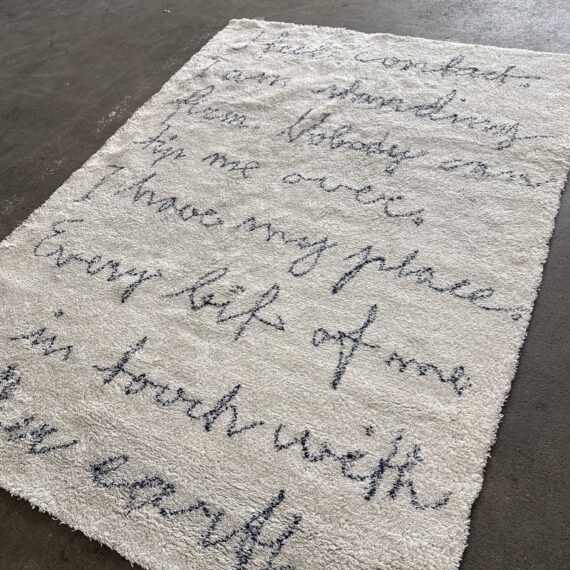 I feel contact.
I am standing
firm. Nobody can
tip me over.
I have my place.
Every bit of me
in touch with
the earth